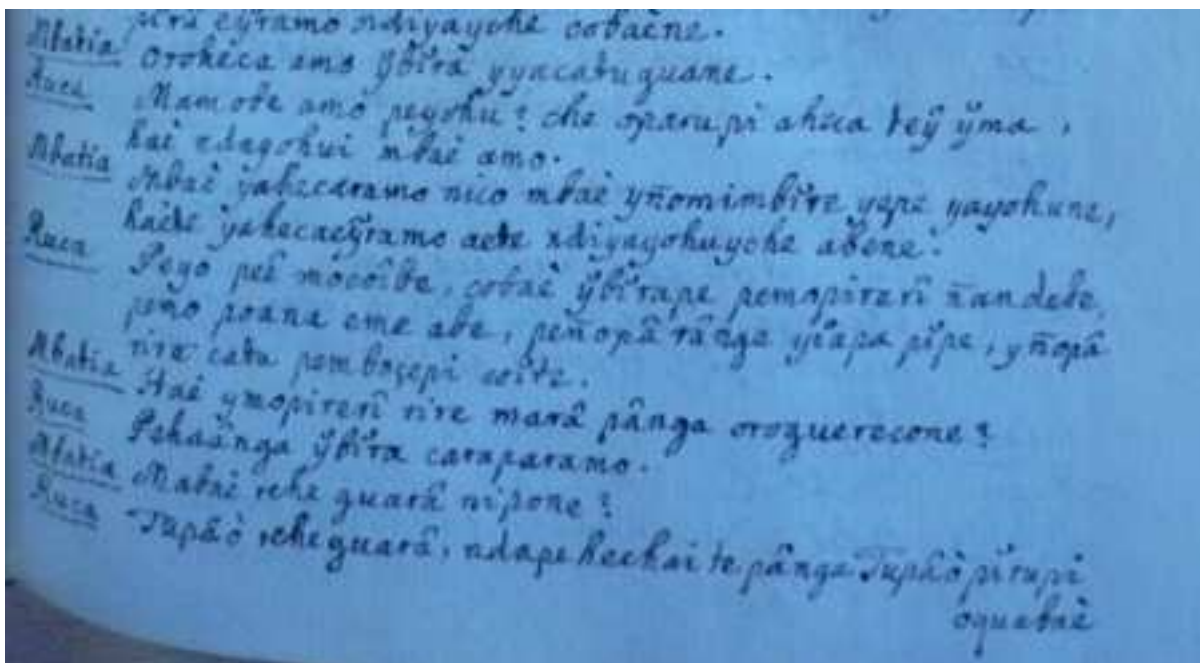 pira eỹramo ndiyayohe cobaène.
Abatia Oroheca amo ỹbĭrâ yyacatuguane.
Ruca Mamobe amo peyohu? che oparupi aheca teỹ ỹma,
haè ndayohui mbaè amo.
Abatia Mbaè yahecaramo nico mbaè yñomimbĭre yepe yayohune,
haebe yahecaeỹramo aete ndiyayohuyche abene.
Ruca Peyo peê mocoîbe, cobaè ỹbĭrape pemopirerî ñandebe,
peño poana eme abe, peñopâ rânga yĭapa pĭpe, yñopâ
rire catu pemboçepi coĭte.
Abatia Haè ymopirerî rire marâ pânga oroguerecone?
Ruca Pehaânga ỹbĭra caraparamo.
Abatia Mabaè rehe guarâ nipone?
Ruca Tupâò reheguarâ, ndapehechai te pânga Tupâò pĭtupi
oquabaè